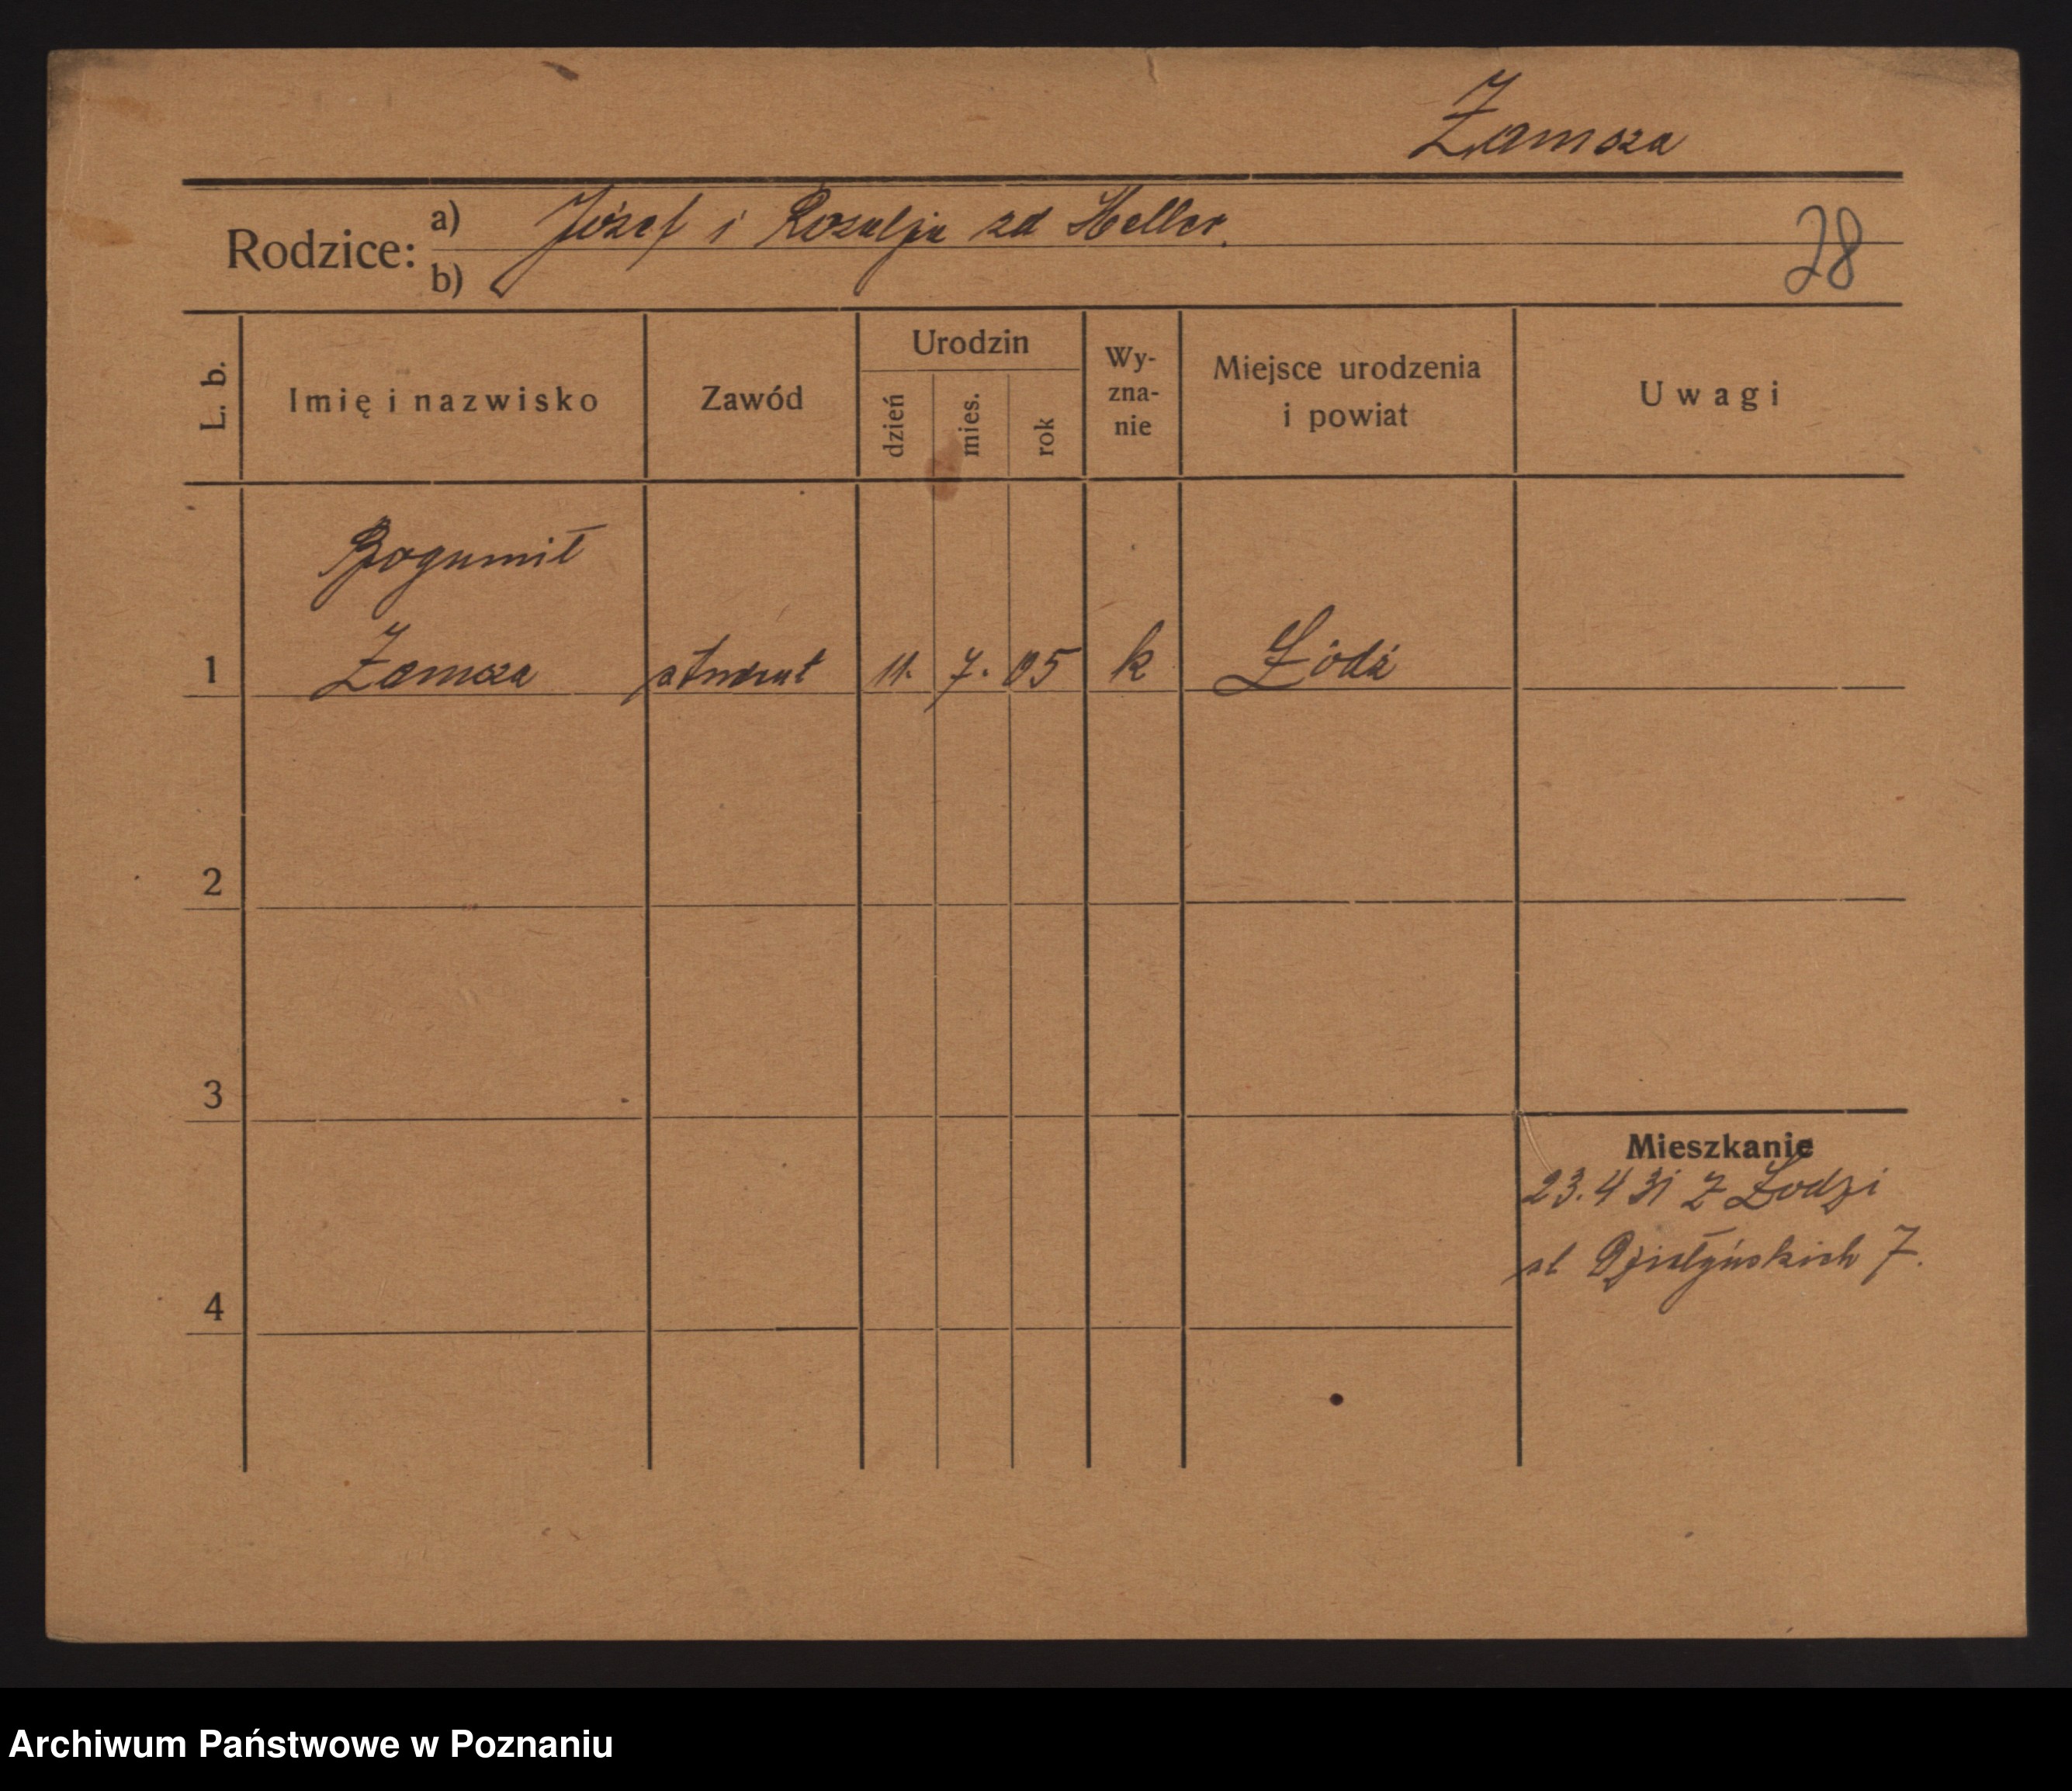 Zamoza
Rodzice: a) Józef i Rozalja zd Heller.
b)
28
L. b.
Imię i nazwisko
Zawód
Urodzin
dzień
mies.
rok
Wy-
zna-
nie
Miejsce urodzenia
i powiat
Uwagi
Bogumił
1 Zamoza student 11. 7. 05 k Łódź
2
3
4
Mieszkanie
23.4 31 z Łodzi
Działyńskich 7.
Archiwum Państwowe w Poznaniu